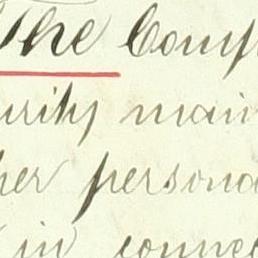 The Comp
urity main
her persona
in connec